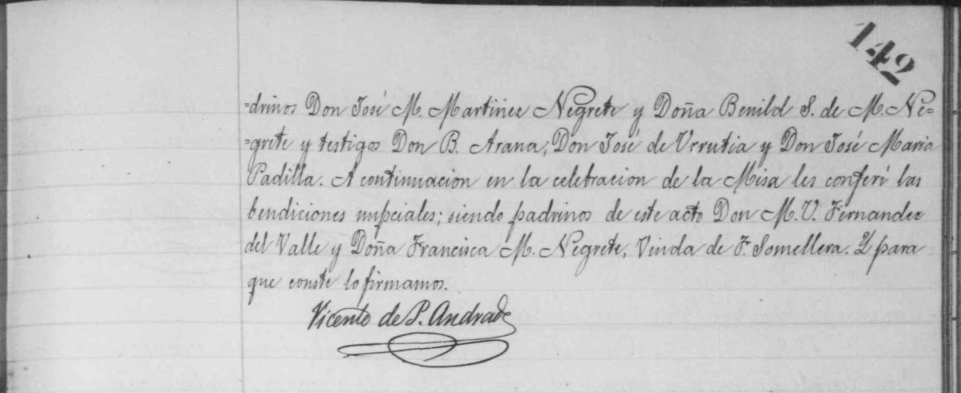 142
=drinos Don José M. Martinez Negrete y Doña Benild S. de M. Ne=
=grete y testigos Don B. Arana, Don José de Urrutia y Don José Maria
Padilla. A continuacion en la celebracion de la Misa les conferí las
bendiciones nupciales; siendo padrinos de este acto Don M. V. Fernandez
del Valle y Doña Francisca M. Negrete, Viuda de F. Somellera. Y para
que conste lo firmamos.
Vicente de P. Andrade